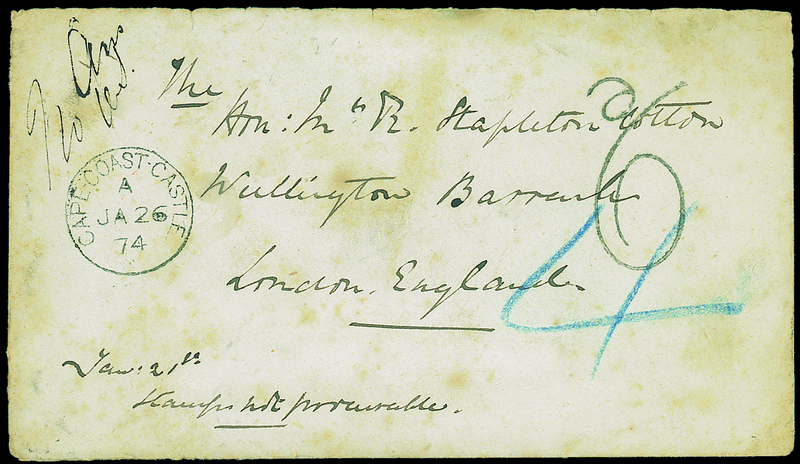 The
Hon: Mrs R. Stapleton Cotton
Wellington Barracks
London. England
CAPE-COAST-CASTLE
A
JA 26
74
6
4
Jan: 21st
Stamps not procurable.